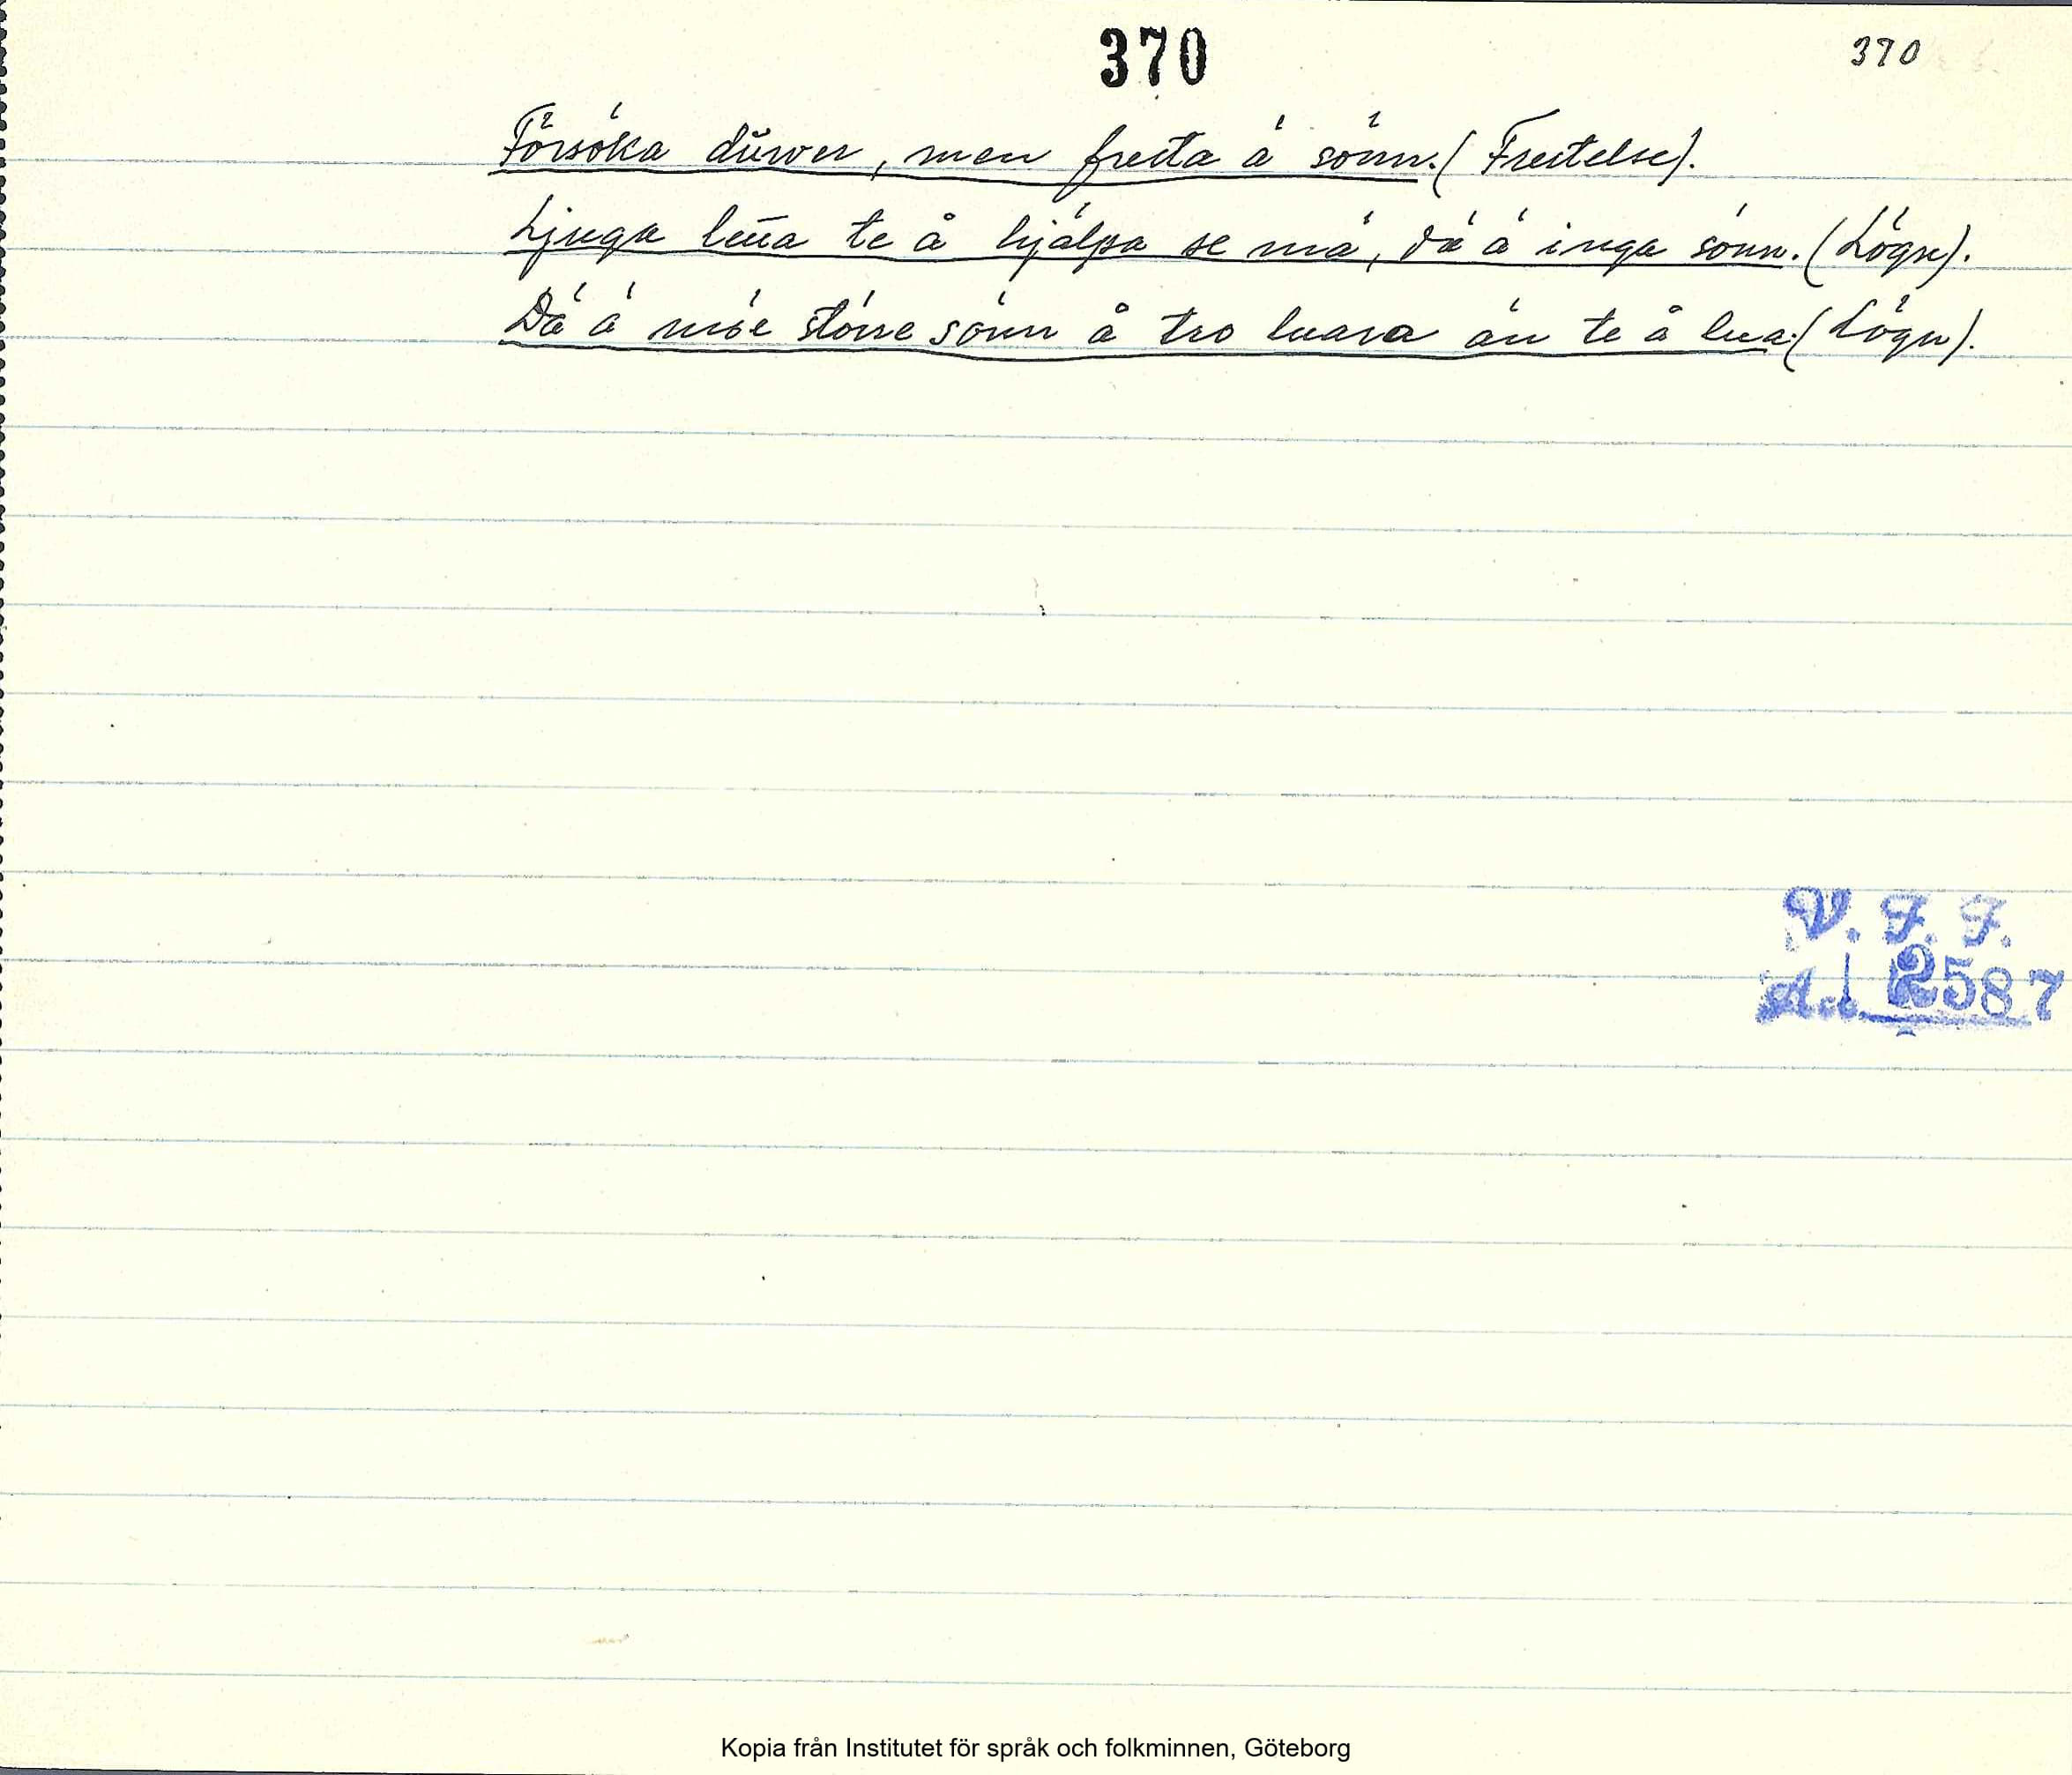 370
370
Försöka düwer, men freita ä sönn. (Freitelse).
Ljuga leua te å hjälpa se mä, dä ä inga sönn. (Lögn).
Dä ä möe större sönn å tro luara än te å lua. (Lögn).
V. F. F.
Ac. 2587
Kopia från Institutet för språk och folkminnen, Göteborg